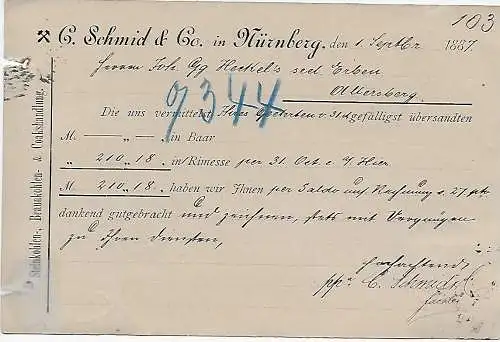 103
C. Schmid & Co. in Nürnberg, den 1. Septbr 1887.
Herrn Joh. Gg Heckel's sel Erben
Allersberg.
9344
Die uns vermittelst Ihres Geehrten v. 31ten gefälligst übersandten
M. — „ — „ in Baar
„ 210 „ 18. „ in Rimesse per 31. Oct c. a/ Hier
M. 210 „ 18. „ haben wir Ihnen per Saldo uns. Rechnung v. 27. pto
dankend gutgebracht und zeichnen, stets mit Vergnügen
zu Ihren Diensten,
Hochachtend
ppa C. Schmid &
Steinkohlen-, Braunkohlen- & Coakshandlung.